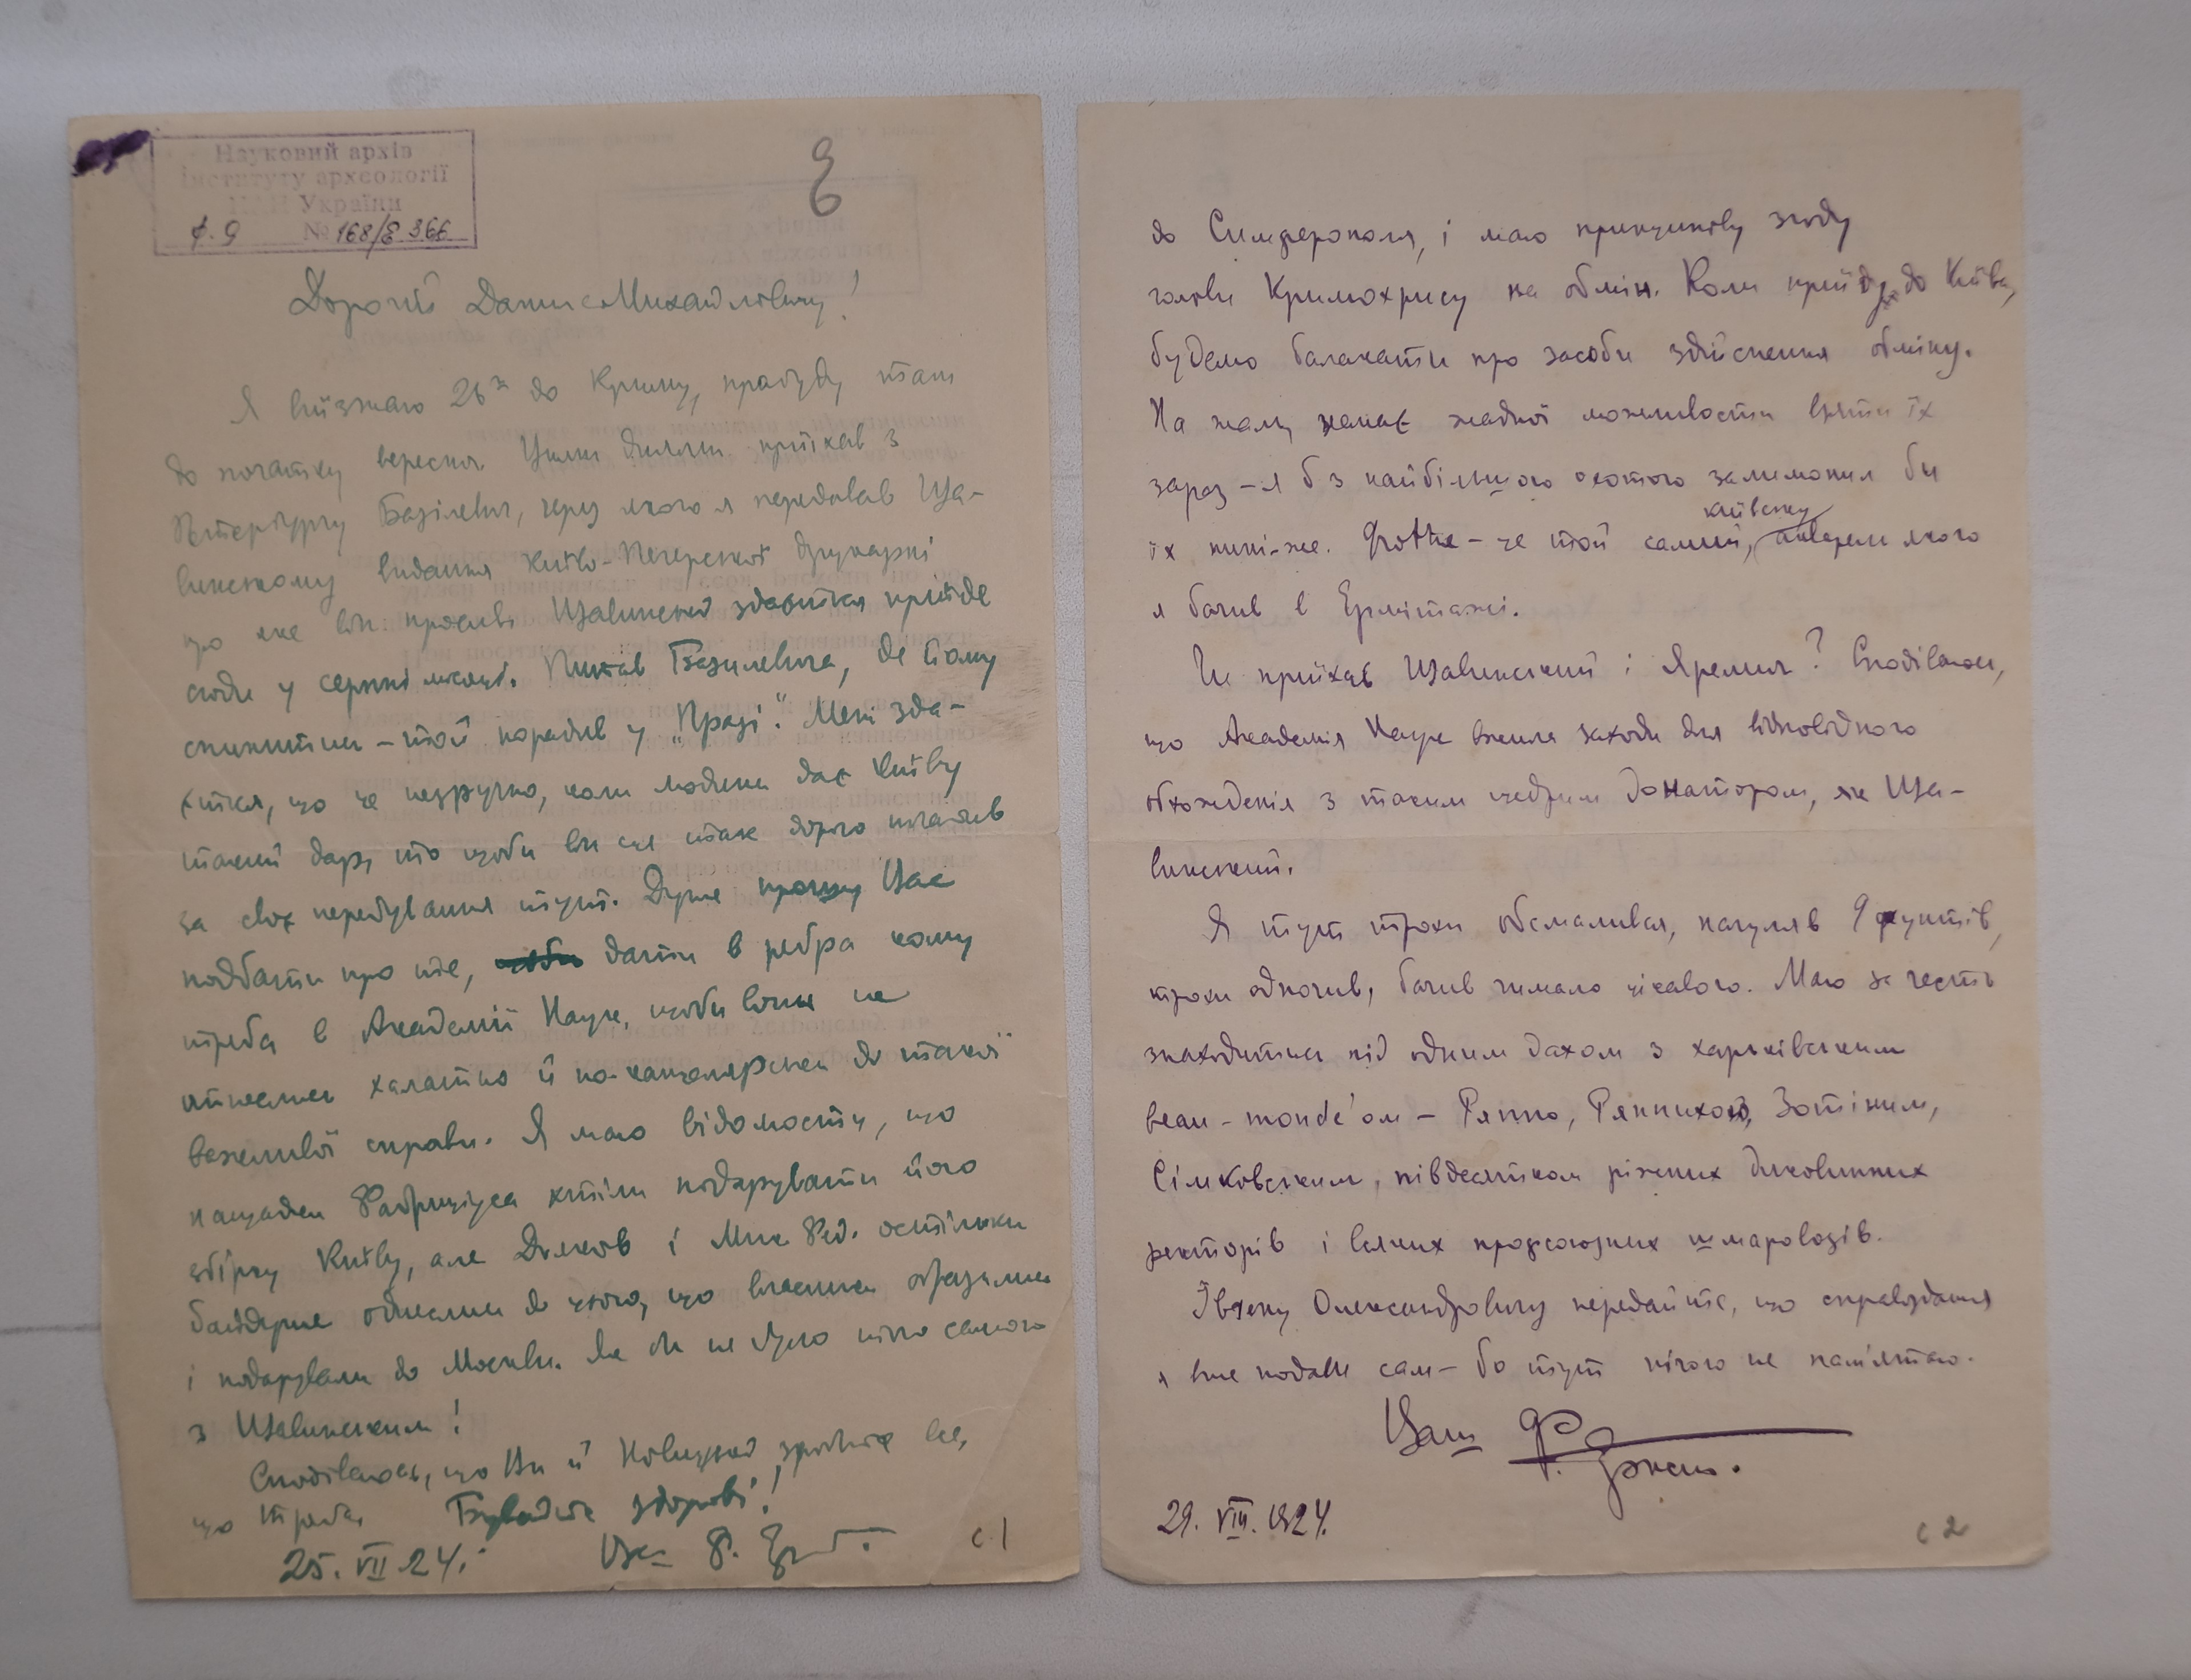 Науковий архів
Інституту археології
НАН України
ф. 9 № 168/Е 366
Дорогий Данило Михайловичу!
Я виїзжаю 26го до Криму, пробуду там
до початку вересня. Цими днями приїхав з
Петербургу Базілевич, через якого я передавав Ща-
винському видання Київо-Печерської друкарні
про яке він просив. Щавинський здається приїде
сюди у серпні місяці. Питав Базилевича, де йому
спинитись – той порадив у „Празі". Мені зда-
ється, що це незручно, коли людина дає Київу
такий дар, то щоби він ще так дорого платив
за своє перебування тут. Дуже прошу Вас
подбати про те, дати в ребра кому
треба в Академії Наук, щоби вони не
віднеслись халатно й по-канцелярськи до такої
важливої справи. Я маю відомости, що
нащадки Фабриціуса хтіли подарувати його
збірку Київу, але Дяков і Мик Фед. остільки
байдуже віднеслись до цього, що власники образились
і подарували до Москви. Як би не було того самого
з Щавинським!
Сподіваюсь, що Ви й Новицький зробите все,
що треба. Бувайте здорові!
25. VII 24. Ваш Ф. Ернст.
с. 1
до Симферополя, і маю принципову згоду
голови Кримохрису на обмін. Коли приїду до Київа,
будемо балакати про засоби здійснення обміну.
На жаль, немає жадної можливости взяти їх
зараз – я б з найбільшою охотою залимонив би
їх нині-же. Grothe – це той самий, київську акварель якого
я бачив в Ермітажі.
Чи приїхав Щавинський і Яремич? Сподіваюсь,
що Академія Наук вжила заходи для відповідного
обходження з таким щедрим донатором, як Ща-
винський.
Я тут трохи обсмалився, нагуляв 9 фунтів,
трохи одпочив, бачив чимало цікавого. Маю за честь
знаходитись під одним дахом з харьківським
beau-monde'ом – Ряппо, Ряппихою, Зотіним,
Сімковським, півдесятком ріжних диковинних
ректорів і всяких профсоюзних шмаровозів.
Івгену Олександровичу передайте, що справоздання
я вже подам сам – бо тут нічого не пам'ятаю.
Ваш Ф. Ернст.
29. VIII. 1924.
с 2